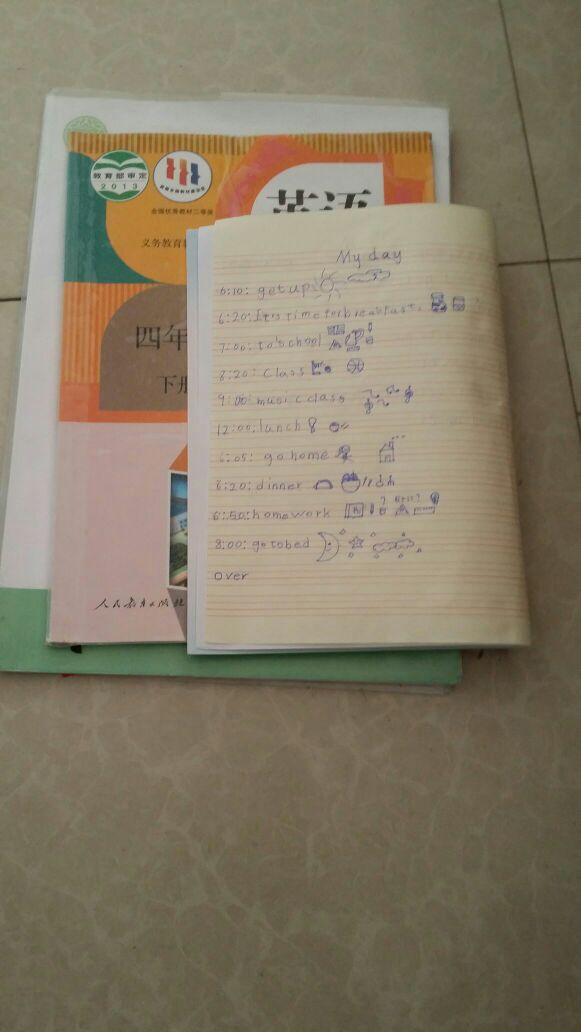 教育部审定
2013
全国优秀教材二等奖
义务教育
英语
四年
下册
人民教育出版社
My day
6:10: get up
6:20: It's time for breakfast.
7:00: to school
8:20: class
9:00: music class
12:00: lunch
6:05: go home
6:20: dinner
6:50: homework
8:00: go to bed
over